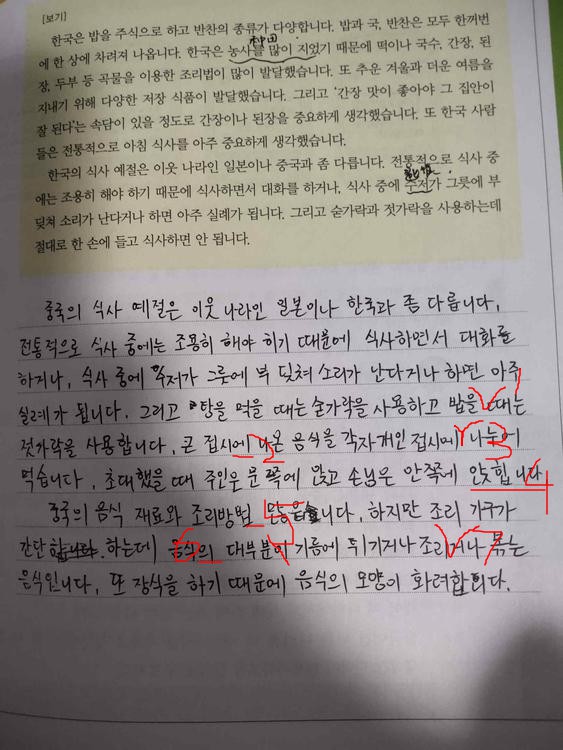 [보기]
한국은 밥을 주식으로 하고 반찬의 종류가 다양합니다. 밥과 국, 반찬은 모두 한꺼번
에 한 상에 차려져 나옵니다. 한국은 농사를 많이 지었기 때문에 떡이나 국수, 간장, 된
장, 두부 등 곡물을 이용한 조리법이 많이 발달했습니다. 또 추운 겨울과 더운 여름을
지내기 위해 다양한 저장 식품이 발달했습니다. 그리고 '간장 맛이 좋아야 그 집안이
잘 된다'는 속담이 있을 정도로 간장이나 된장을 중요하게 생각했습니다. 또 한국 사람
들은 전통적으로 아침 식사를 아주 중요하게 생각했습니다.
한국의 식사 예절은 이웃 나라인 일본이나 중국과 좀 다릅니다. 전통적으로 식사 중
에는 조용히 해야 하기 때문에 식사하면서 대화를 하거나, 식사 중에 수저가 그릇에 부
딪쳐 소리가 난다거나 하면 아주 실례가 됩니다. 그리고 숟가락과 젓가락을 사용하는데
절대로 한 손에 들고 식사하면 안 됩니다.
중국의 식사 예절은 이웃 나라인 일본이나 한국과 좀 다릅니다.
전통적으로 식사 중에는 조용히 해야 하기 때문에 식사하면서 대화를
하거나, 식사 중에 수저가 그릇에 부 딪쳐 소리가 난다거나 하면 아주 1
실례가 됩니다. 그리고 탕을 먹을 때는 숟가락을 사용하고 밥을 때는
젓가락을 사용합니다. 큰 접시에 나온 음식을 각자개인 접시에 2 3
먹습니다. 초대했을 때 주인은 문 쪽에 앉고 손님은 안쪽에 앉힙니다 4
중국의 음식 재료와 조리방법 많습니다. 하지만 조리 기구가 5
간단 하는데 음식의 대부분이 기름에 튀기거나 조리거나 볶는 6 7
음식입니다. 또 장식을 하기 때문에 음식의 모양이 화려합니다.